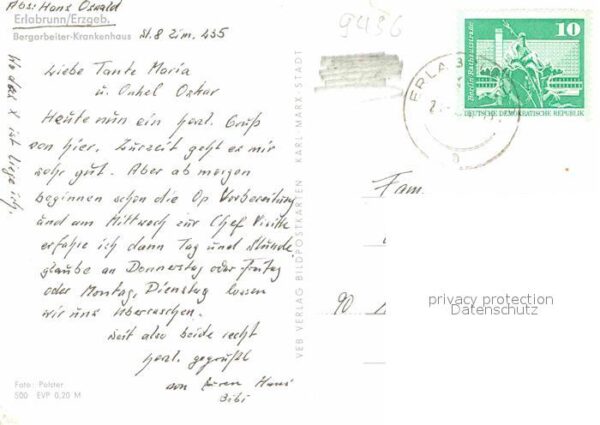 Abs: Hans Oswald
Erlabrunn/Erzgeb.
Bergarbeiter-Krankenhaus
St. 8 Zim. 435
Liebe Tante Maria
u. Onkel Oskar
Heute nun ein herzl. Gruß
von hier. Zurzeit geht es mir
sehr gut. Aber ab morgen
beginnen schon die Op Vorbereitung
und am Mittwoch zur Chef Visite
erfahre ich dann Tag und Stunde
glaube an Donnerstag oder Freitag
oder Montag, Dienstag lassen
wir uns überraschen.
Seit also beide recht
herzl. gegrüßt
von Euren Hans
Wo das X ist liege ich.
Foto: Polster
500 EVP 0,20 M
VEB VERLAG BILDPOSTKARTEN KARL-MARX-STADT
9436
ERLAB
Berlin, Rathausstraße
10
DEUTSCHE DEMOKRATISCHE REPUBLIK
Fam.
90
privacy protection
Datenschutz